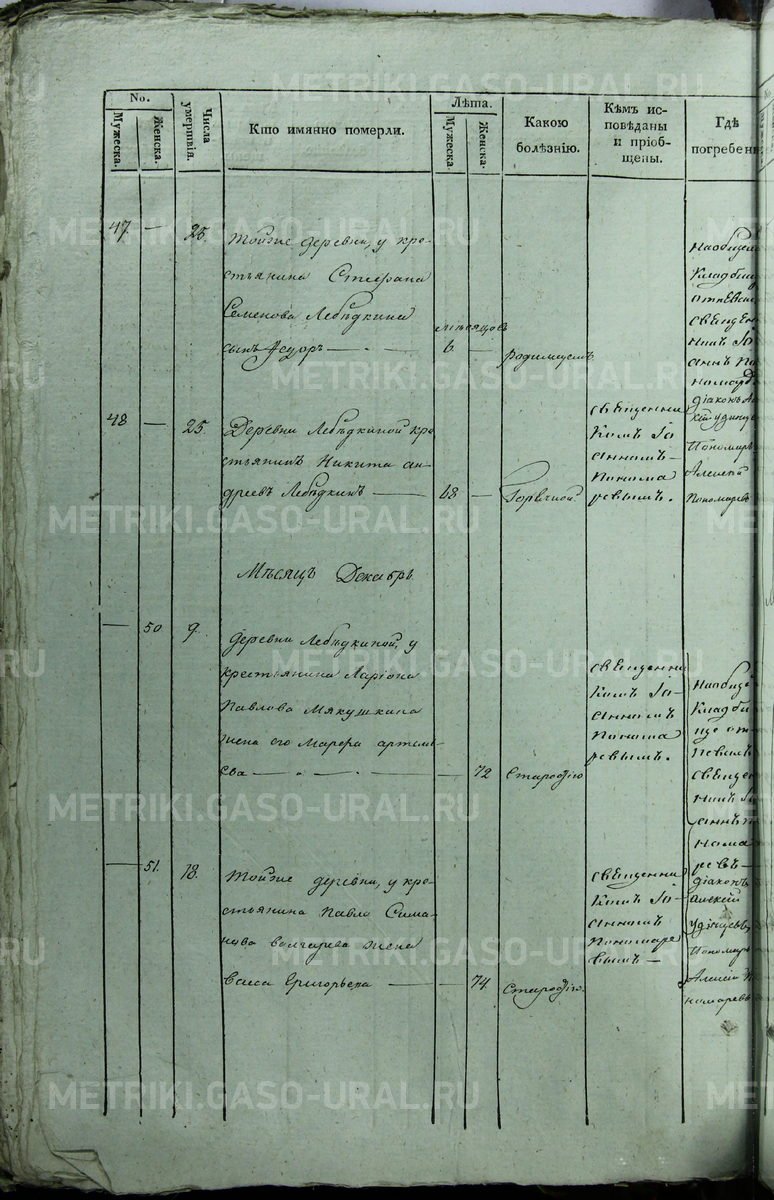 No.
Мужеска.
Женска.
Числа умертвія.
Кто имянно померли.
Лѣта.
Мужеска.
Женска.
Какою
болѣзнію.
Кѣмъ ис-
повѣданы
и пріоб-
щены.
Гдѣ
погребен
47.
—
25.
тойже деревни, у кре-
стьянина Стефана
Семенова Лебѣдкина
сынъ Ѳедоръ —
мѣсяцов
6. —
родимцемъ
на общем
кладбищ
отпѣван
священ
никъ Іо
аннъ По
номарь
діаконъ Ал
Пономарь
Алексей
Пономаревъ
48
—
25.
Деревни Лебѣдкиной кре
стьянинъ Никита Ан-
дреевъ Лебѣдкинъ —
68 —
Горячкой
священни
комъ Іо-
анномъ
Понома
ревымъ.
Мѣсяцъ Декабрь
—
50
9.
деревни Лебѣдкиной, у
крестьянина Ларіона
Павлова Мякушкина
жена его Марфа Артемь-
ева —
— 72
Старостію
священни
комъ Іо-
анномъ
Понома
ревымъ.
на общем
кладби
ще от
певалъ
священ
никъ Іо
аннъ По
нома
ревъ —
діаконъ
Алексей
Пономарь
Алексей По
номаревъ
—
51.
18.
тойже деревни, у кре-
стьянина Павла Сима-
нова жена
васса Григорьева —
— 74.
Старостію.
священни
комъ Іо-
анномъ
Пономаре
вымъ —
METRIKI.GASO-URAL.RU